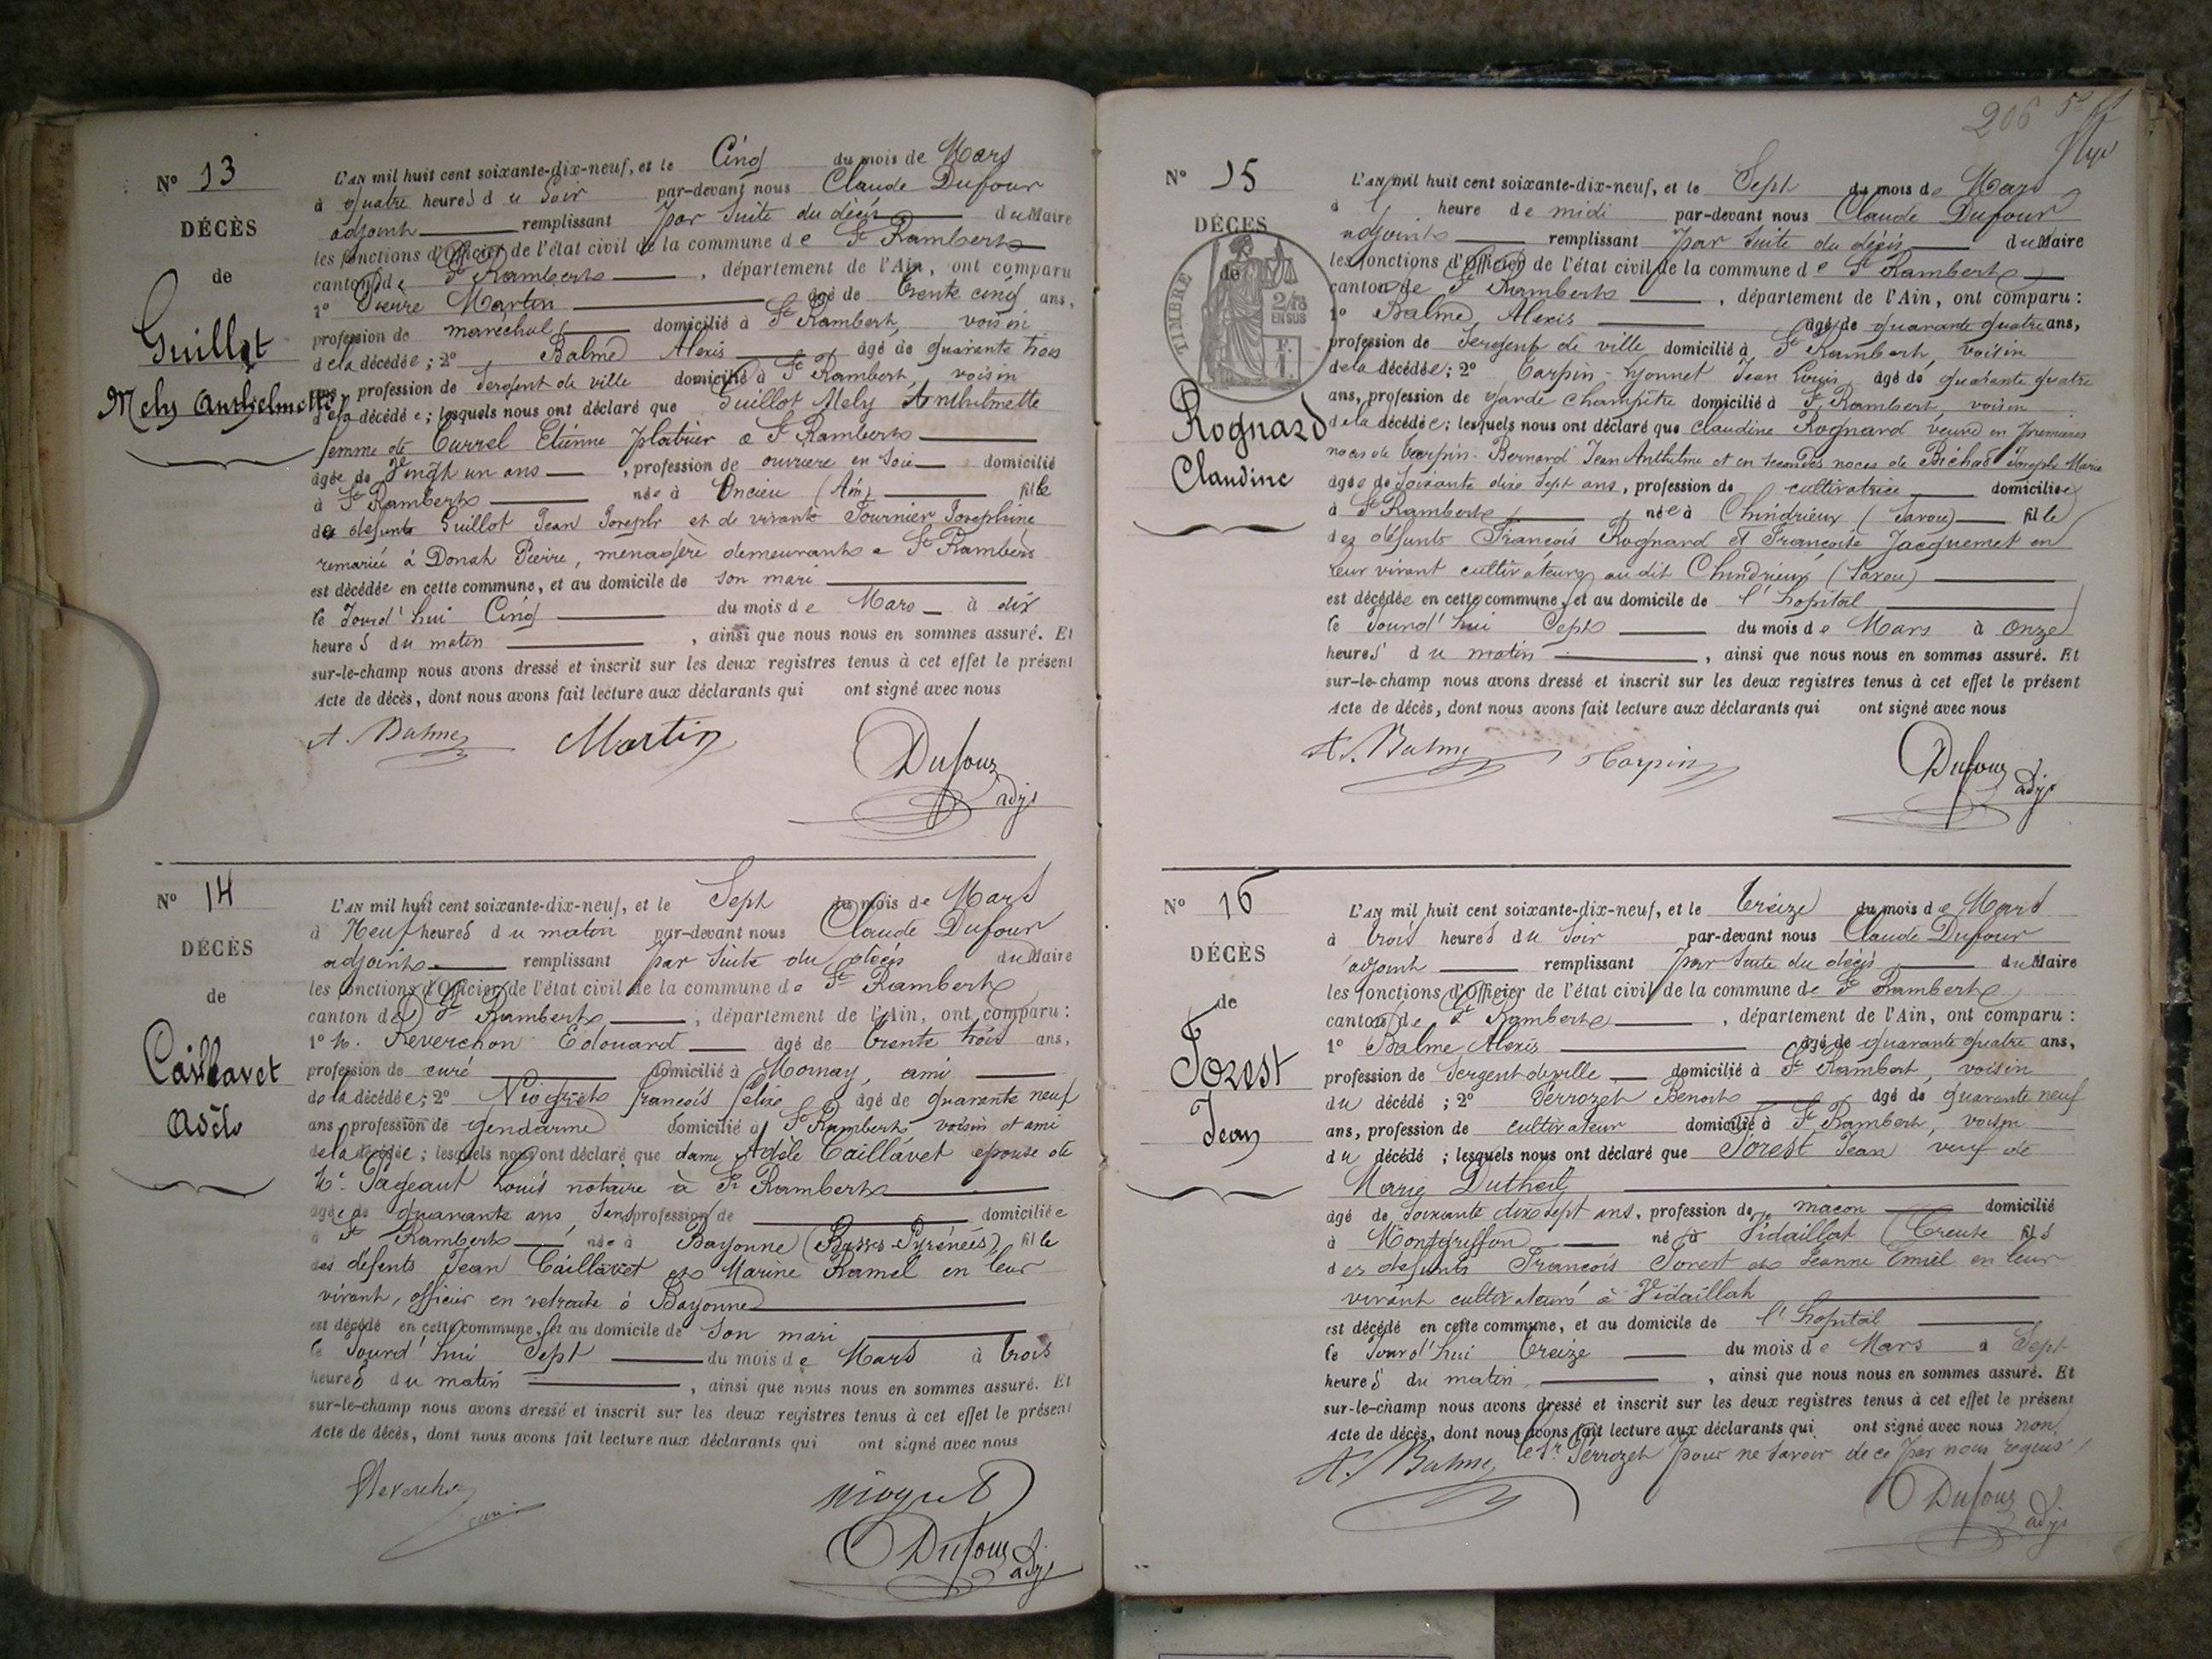 N° 13
DÉCÈS
de
Guillot
Mely Anthelmette
L'AN mil huit cent soixante-dix-neuf, et le Cinq du mois de Mars
à quatre heures du Soir par-devant nous Claude Dufour
adjoint remplissant par suite du décès du Maire
les fonctions d'Officier de l'état civil de la commune de St Rambert
canton de St Rambert, département de l'Ain, ont comparu
1° Pierre Martin âgé de trente cinq ans,
profession de maréchal domicilié à St Rambert, voisin
de la décédée; 2° Balme Alexis âgé de quarante trois
ans, profession de Sergent de ville domicilié à St Rambert, voisin
de la décédée; lesquels nous ont déclaré que Guillot Mely Anthelmette
femme de Currel Etienne platrier à St Rambert
âgée de Vingt un ans, profession de ouvriere en soie domicilié
à St Rambert née à Oncieu (Ain) fille
de defunt Guillot Jean Joseph et de vivante Fournier Josephine
remariée à Donat Pierre, menagère demeurant à St Rambert
est décédée en cette commune, et au domicile de son mari
le Jourd'hui Cinq du mois de Mars à dix
heures du matin, ainsi que nous nous en sommes assuré. Et
sur-le-champ nous avons dressé et inscrit sur les deux registres tenus à cet effet le présent
Acte de décès, dont nous avons fait lecture aux déclarants qui ont signé avec nous
A. Balme Martin Dufour adjt
N° 14
DÉCÈS
de
Caillavet
Adèle
L'AN mil huit cent soixante-dix-neuf, et le Sept du mois de Mars
à Neuf heures du matin par-devant nous Claude Dufour
adjoint remplissant par suite du décès du Maire
les fonctions d'Officier de l'état civil de la commune de St Rambert
canton de St Rambert, département de l'Ain, ont comparu:
1° M. Reverchon Edouard âgé de trente trois ans,
profession de curé domicilié à Mornay, ami
de la décédée; 2° Niogret francois felix âgé de quarante neuf
ans profession de gendarme domicilié à St Rambert voisin et ami
de la décédée; lesquels nous ont déclaré que dame Adèle Caillavet epouse de
Mr Pageaut Louis notaire à St Rambert
âgée de quarante ans, Sans profession de domiciliée
à St Rambert née à Bayonne (Basses-Pyrénées) fille
des défunts Jean Caillavet et Marine Ramel en leur
vivant, officier en retraite à Bayonne
est décédé en cette commune, et au domicile de Son mari
le Jourd'hui Sept du mois de Mars à trois
heures du matin, ainsi que nous nous en sommes assuré. Et
sur-le-champ nous avons dressé et inscrit sur les deux registres tenus à cet effet le présent
Acte de décès, dont nous avons fait lecture aux déclarants qui ont signé avec nous
Reverchon curé Niogret
Dufour adjt
206
N° 15
DÉCÈS
de
TIMBRE
2/10 EN SUS
F. 1.
Rognard
Claudine
L'AN mil huit cent soixante-dix-neuf, et le Sept du mois de Mars
à heure de midi par-devant nous Claude Dufour
adjoint remplissant par suite du décès du Maire
les fonctions d'Officier de l'état civil de la commune de St Rambert
canton de St Rambert, département de l'Ain, ont comparu:
1° Balme Alexis âgé de quarante quatre ans,
profession de Sergent de ville domicilié à St Rambert, voisin
de la décédée; 2° Carpin-Lyonnet Jean Louis âgé de quarante quatre
ans, profession de garde champêtre domicilié à St Rambert, voisin
de la décédée; lesquels nous ont déclaré que Claudine Rognard veuve en premieres
noces de Carpin-Bernard Jean Anthelme et en secondes noces de Bichat Joseph Marie
âgée de Soixante dix Sept ans, profession de cultivatrice domiciliée
à St Rambert, née à Chindrieux (Savoie) fille
des défunts François Rognard et Françoise Jacquemet en
leur vivant cultivateurs au dit Chindrieux (Savoie)
est décédée en cette commune, et au domicile de l'hopital
le Jourd'hui Sept du mois de Mars à onze
heures du matin, ainsi que nous nous en sommes assuré. Et
sur-le-champ nous avons dressé et inscrit sur les deux registres tenus à cet effet le présent
Acte de décès, dont nous avons fait lecture aux déclarants qui ont signé avec nous
A. Balme Carpin Dufour adjt
N° 16
DÉCÈS
de
Forest
Jean
L'AN mil huit cent soixante-dix-neuf, et le treize du mois de Mars
à trois heures du Soir par-devant nous Claude Dufour
adjoint remplissant par suite du décès du Maire
les fonctions d'Officier de l'état civil de la commune de St Rambert
canton de St Rambert, département de l'Ain, ont comparu:
1° Balme Alexis âgé de quarante quatre ans,
profession de Sergent de ville domicilié à St Rambert, voisin
du décédé; 2° Perrozet Benoit âgé de quarante neuf
ans, profession de cultivateur domicilié à St Rambert, voisin
du décédé; lesquels nous ont déclaré que Forest Jean veuf de
Marie Dutheil
âgé de Soixante dix sept ans, profession de macon domicilié
à Montgriffon né à Vidaillat (Creuse fils
des défunts Francois Forest et Jeanne Emiel en leur
vivant cultivateurs à Vidaillat
est décédé en cette commune, et au domicile de l'hopital
le Jourd'hui treize du mois de Mars à Sept
heures du matin, ainsi que nous nous en sommes assuré. Et
sur-le-champ nous avons dressé et inscrit sur les deux registres tenus à cet effet le présent
Acte de décès, dont nous avons fait lecture aux déclarants qui ont signé avec nous non
le Sr Perrozet pour ne savoir de ce par nous requis
A. Balme Dufour adjt